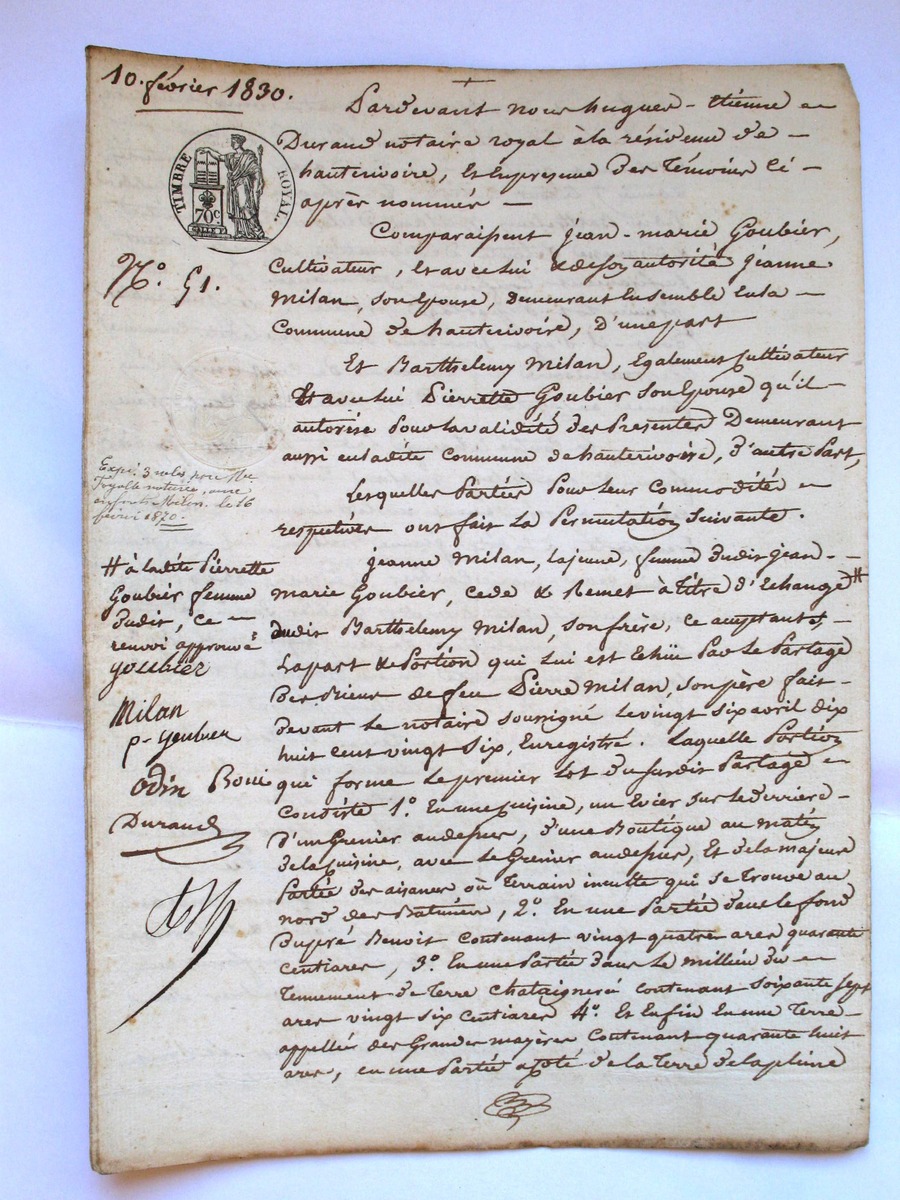 10. février 1830.
Pardevant nous hugues - Etienne
Durand notaire royal à la résidence de
hauterivoire, et en presence des Témoins Ci-
après nommés
TIMBRE ROYAL.
70c
Comparaissent jean-marie Goubier,
N.° 51.
Cultivateur, et avec lui & de son autorité jeanne
Milan, son Epouse, Demeurant Ensemble En la
Commune de hauterivoire, D'une part
Et Barthelemy Milan, Egalement Cultivateur
Et avec lui Pierrette Goubier son Epouse qu'il
autorise Pour la validité des Presentes Demeurant
aussi en ladite Commune de hauterivoire, d'autre Part,
Lesquelles Parties Pour leur Commodité
respectives ont fait la Permutation Suivante.
Expé. 3
notaire,
Milan. le 16
févri 1870.
jeanne Milan, la jeune, femme dudit jean-
marie Goubier, cede & Remet à Titre d'Echange #
dudit Barthelemy Milan, son frère, ce acceptant,
La part & Portion qui lui est Echüe Par le Partage
Des Biens de feu Pierre Milan, son père fait
devant le notaire soussigné le vingt six avril dix
huit cent vingt six, Enregistré. Laquelle Portion
qui forme le premier Lot du susdit Partage
Consiste 1.° En une Cuisine, un Evier sur le derriere
D'un Grenier au dessus, d'une Boutique au matin
de la Cuisine, avec le Grenier au dessus, Et de la majeure
Partie des aisances où Terrain inculte qui se Trouve au
nord des Batimens, 2.° En une Partie dans le fond
Dupré Benoit Contenant vingt quatre ares quarante
Centiares, 3.° En une Partie dans le millieu du
Tennement de Terre Chataigneré contenant soixante sept
ares vingt six centiares 4.° Et Enfin En une Terre
appellée des Grandes mayères Contenant quarante huit
ares, en une Partie a côté de la Terre de la pleine
# à ladite Pierrette
Goubier femme
dudit, ce
renvoi approuvé
goubier
Milan
p. goubier
Odin
Durand